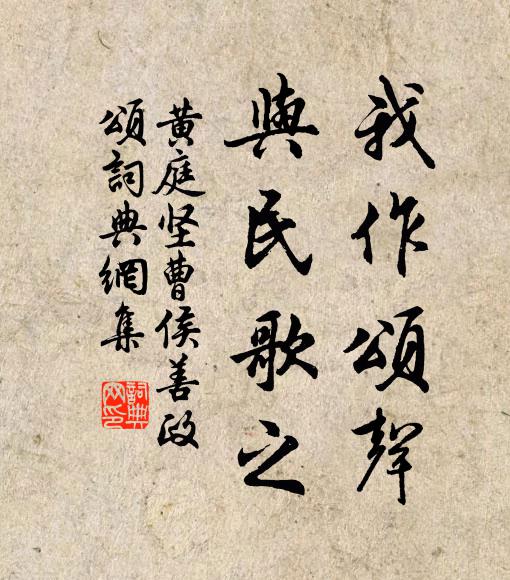 我作頌聲
與民歌之
黃庭坚曹侯善政
頌詞典網集
詞典網印